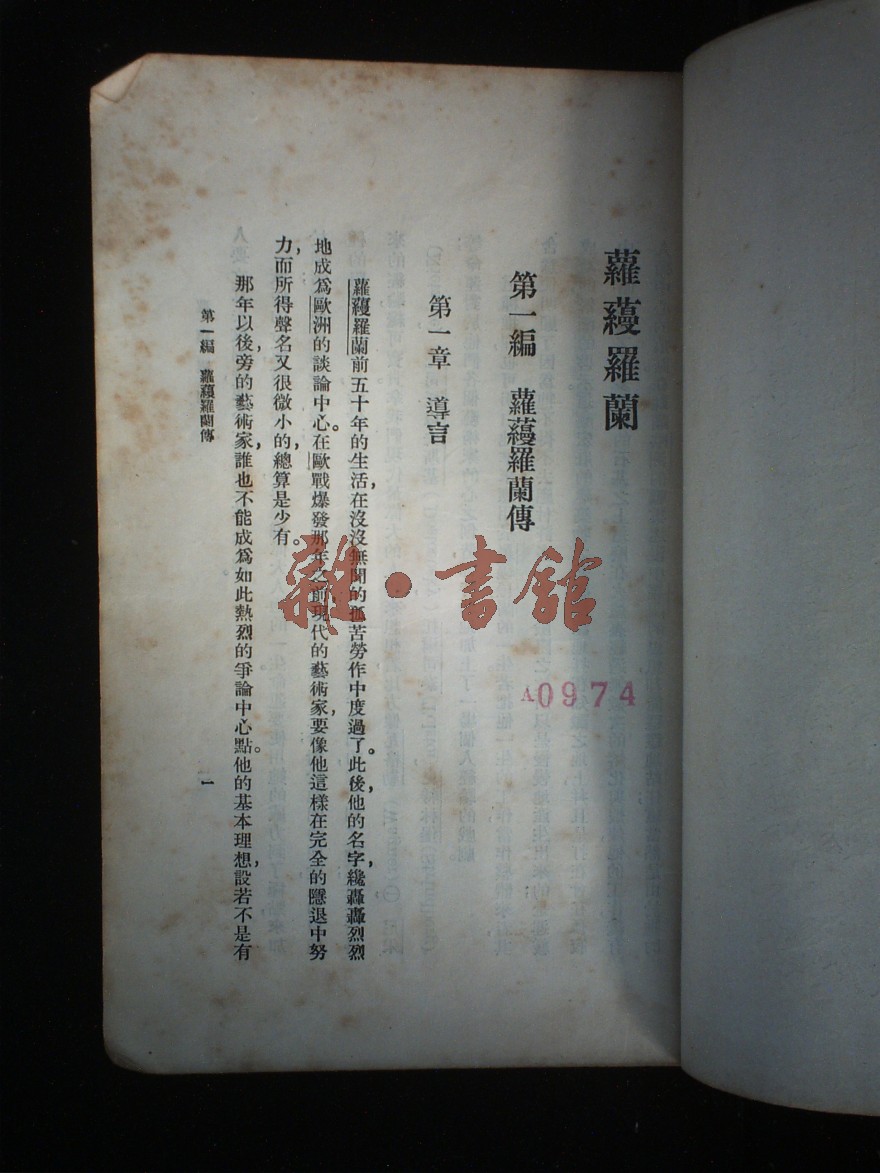 蘿蔓羅蘭
第一編 蘿蔓羅蘭傳
第一章 導言
蘿蔓羅蘭前五十年的生活，在沒沒無聞的孤苦勞作中度過了。此後他的名字，纔轟轟烈烈
地成爲歐洲的談論中心。在歐戰爆發那年之前，現代的藝術家，要像他這樣在完全的隱退中努
力，而所得聲名又很微小的，總算是少有。
那年以後，旁的藝術家，誰也不能成爲如此熱烈的爭論中心點。他的基本理想，設若不是有
第一編 蘿蔓羅蘭傳
一
雜·書館
A0974